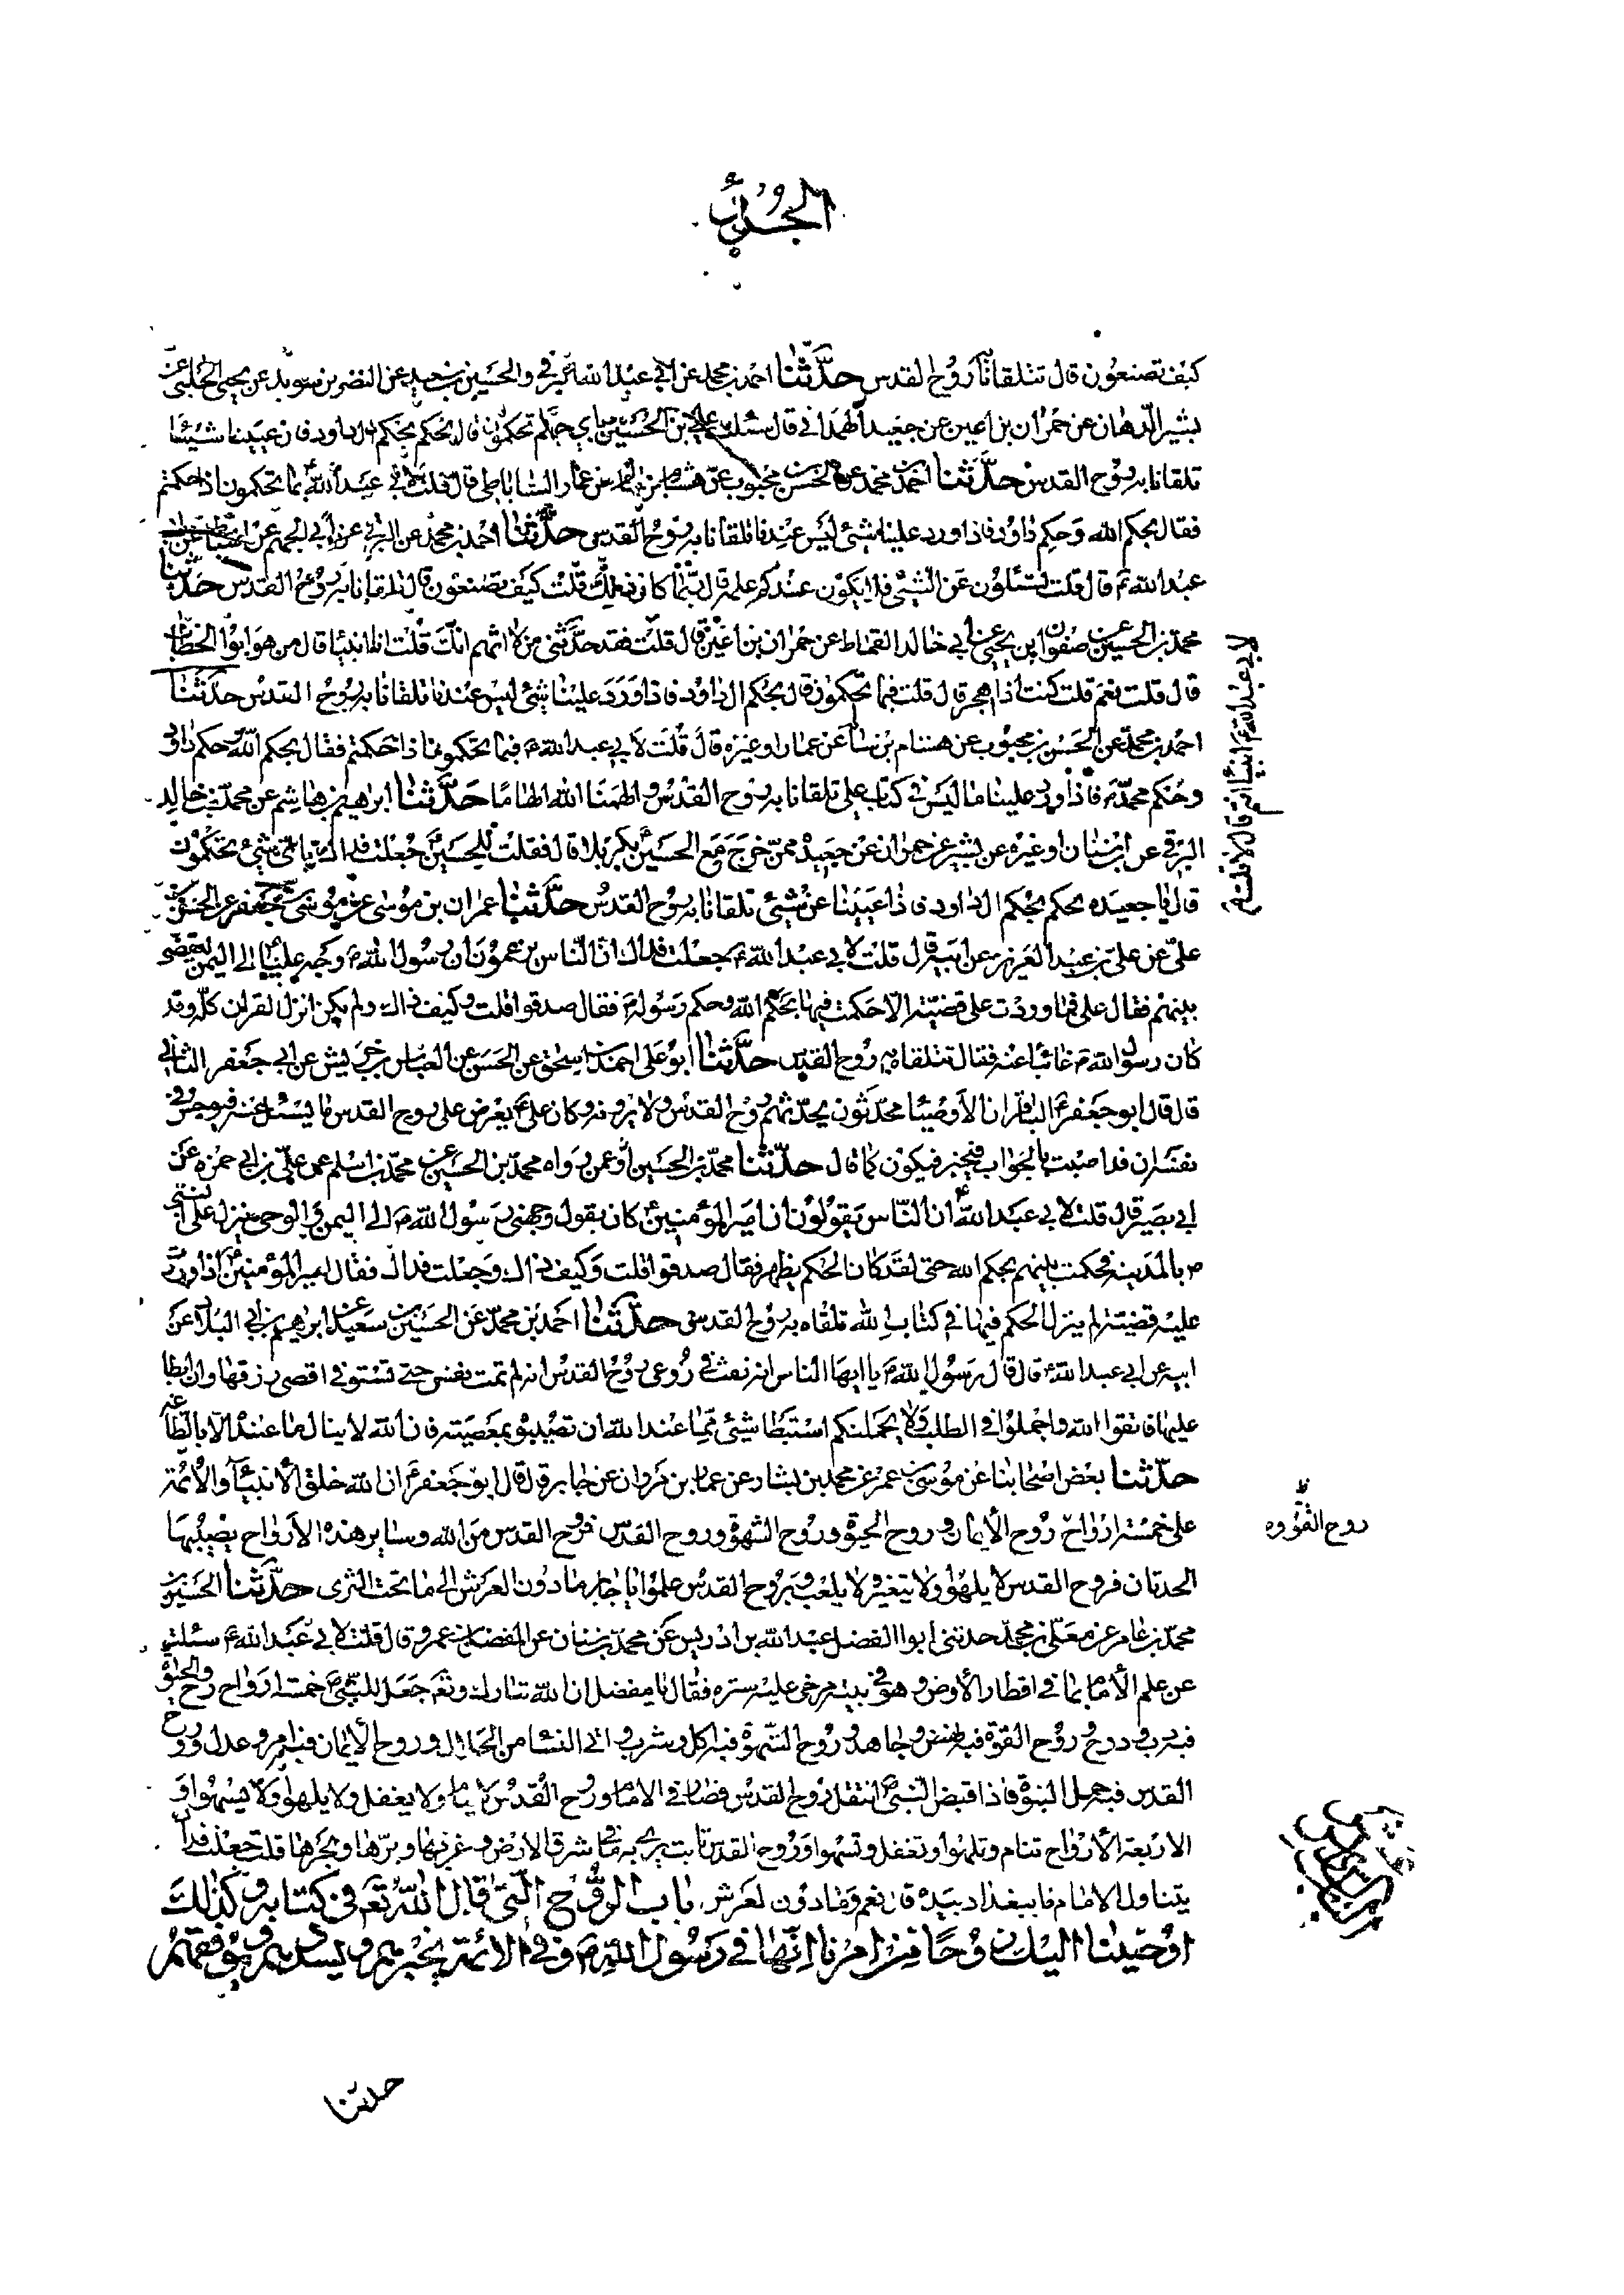 الجزؤ
كيف تصنعون قال تتلقانا روح القدس حدّثنا احمد بن محمد عن ابي عبد الله البرقي والحسين بن سعيد عن النضر بن سويد عن يحيى الحلبي عن
بشير الدهان عن حمران بن اعين عن جعيد الهمداني قال سئلت علي بن الحسين باي حكم تحكمون قال نحكم بحكم ال داود فان عيينا شيئا
تلقانا به روح القدس حدّثنا احمد بن محمد عن الحسن بن محبوب عن هشام بن سالم عن عمار الساباطي قال قلت لابي عبد الله ع بما تحكمون اذا حكمتم
فقال بحكم الله وحكم داود فاذا ورد علينا شئ ليس عندنا تلقانا به روح القدس حدّثنا احمد بن محمد عن البرقي عن ابي الجهم عن اسباط عن ابي
عبد الله ع قال قلت تسئلون عن الشئ فلا يكون عندكم علمه قال ربّما كان ذلك قلت كيف تصنعون قال تلقانا به روح القدس حدّثنا
محمد بن الحسين عن صفوان بن يحيى عن ابي خالد القماط عن حمران بن اعين قال قلت فقد حدّثني من لا اتهم انك قلت انا انبياء قال من هو ابو الخطاب
قال قلت نعم قلت كنت اذا اهجر قال قلت فبما تحكمون قال بحكم ال داود فاذا ورد علينا شئ ليس عندنا تلقانا به روح القدس حدّثنا
احمد بن محمد عن الحسن بن محبوب عن هشام بن سالم عن عمار او غيره قال قلت لابي عبد الله ع فبما تحكمون اذا حكمتم فقال بحكم الله وحكم داود
وحكم محمد ص فاذا ورد علينا ما ليس في كتاب علي تلقانا به روح القدس والهمنا الله الهاما حدّثنا ابراهيم بن هاشم عن محمد بن خالد
البرقي عن ابن سنان او غيره عن بشير عن حمران عن جعيد ممن خرج مع الحسين ع بكربلا قال فقلت للحسين ع جعلت فداك باي شئ تحكمون
قال يا جعيده نحكم بحكم ال داود فاذا عيينا عن شئ تلقانا به روح القدس حدّثنا عمران بن موسى عن موسى بن جعفر عن الحسن بن
عليّ عن علي بن عبد العزيز عن ابيه قال قلت لابي عبد الله ع جعلت فداك ان الناس يزعمون ان رسول الله ص وجه عليا ع الى اليمن ليقضي
بينهم فقال علي فما وردت علي قضية الا حكمت فيها بحكم الله وحكم رسوله ص فقال صدقوا قلت وكيف ذاك ولم يكن انزل القران كله وقد
كان رسول الله ص غائبا عنه فقال تتلقاه به روح القدس حدّثنا ابو علي احمد بن اسحق عن الحسن عن العباس بن جريش عن ابي جعفر الثاني
قال قال ابو جعفر الباقر ع ان الاوصياء محدّثون يحدثهم روح القدس ولا يرونه وكان علي ع يعرض على روح القدس ما يسئل عنه فيوجس في
نفسه ان قد اصبت بالجواب فيخبر فيكون كما قال حدّثنا محمد بن الحسين او عمن رواه محمد بن الحسين عن محمد بن اسلم عن علي بن ابي حمزه عن
ابي بصير قال قلت لابي عبد الله ع ان الناس يقولون ان امير المؤمنين ع كان يقول وجهني رسول الله ص الى اليمن والوحي ينزل على النبي
ص بالمدينة فحكمت بينهم بحكم الله حتى لقد كان الحكم يظهر فقال صدقوا قلت وكيف ذاك وجعلت فداك فقال امير المؤمنين ع اذا وردت
عليه قضية لم ينزل الحكم فيها في كتاب الله تلقاه به روح القدس حدّثنا احمد بن محمد عن الحسين بن سعيد عن ابراهيم بن ابي البلاد عن
ابيه عن ابي عبد الله ع قال قال رسول الله ص يا ايها الناس انه نفث في روعي روح القدس انه لم تمت نفس حتى تستوفي اقصى رزقها وان ابطا
عليها فاتقوا الله واجملوا في الطلب ولا يحملنكم استبطاء شئ مما عند الله ان تصيبوه بمعصيته فان الله لا ينال ما عنده الا بالطاعة
حدّثنا بعض اصحابنا عن موسى بن عمر عن محمد بن بشار عن عمار بن مروان عن جابر قال قال ابو جعفر ع ان الله خلق الانبياء والائمة
على خمسة ارواح روح الايمان وروح الحيوة وروح الشهوة وروح القدس فروح القدس من الله وساير هذه الارواح يصيبها
الحدثان فروح القدس لا يلهو ولا يتغير ولا يلعب وبروح القدس علموا يا جابر ما دون العرش الى ما تحت الثرى حدّثنا الحسين بن
محمد بن عامر عن معلى بن محمد حدثني ابو الفضل عبد الله بن ادريس عن محمد بن سنان عن المفضل بن عمرو قال قلت لابي عبد الله ع سئلته
عن علم الامام بما في اقطار الارض وهو في بيته مرخى عليه ستره فقال يا مفضل ان الله تبارك وتعم جعل للنبي ص خمسة ارواح روح الحيوة
فيه دب ودرج وروح القوة فبه نهض وجاهد وروح الشهوة فبه اكل وشرب واتى النساء من الحلال وروح الايمان فبه امر وعدل وروح
القدس فبه حمل النبوة فاذا قبض النبي ص انتقل روح القدس فصار في الامام وروح القدس لا ينام ولا يغفل ولا يلهو ولا يسهوا و
الاربعة الارواح تنام وتلهوا وتغفل وتسهوا وروح القدس ثابت يرى به ما في شرق الارض وغربها وبرها وبحرها قلت جعلت فداك
يتناول الامام ما ببغداد بيده قال نعم وما دون العرش باب الروح التي قال الله تعم في كتابه وكذلك
اوحينا اليك روحا من امرنا انها في رسول الله ص وفي الائمة يخبرهم ويسددهم ويوفقهم
حدثنا
روح القوه